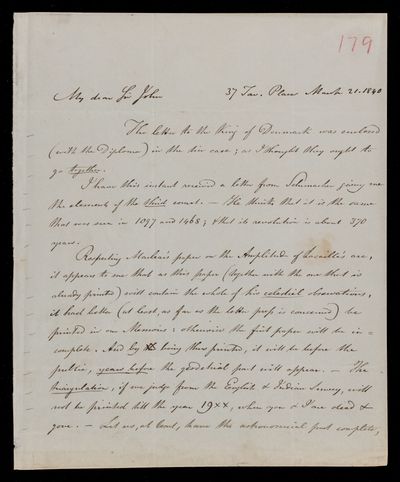 179
My dear Sir John
37 Tav. Place March 21. 1840
The letter to the King of Denmark was enclosed
(with the Diploma) in the tin case; as I thought they ought to
go together.
I have this instant received a letter from Schumacher giving me
the elements of the third comet. — He thinks that it is the same
that was seen in 1097 and 1468; & that its revolution is about 370
years.
Respecting Maclear's paper on the Amplitude of Lacaille's arc,
it appears to me that as this paper (together with the one that is
already printed) will contain the whole of his celestial observations,
it had better (at least, as far as the letter press is concerned) be
printed in our Memoirs: otherwise the first paper will be in=
complete. And by being thus printed, it will be before the
public, years before the geodetical part will appear. — The
triangulation, if we judge from the English & Indian Survey, will
not be printed till the year 19××, when you & I are dead &
gone. — Let us, at least, have the astronomical part complete,